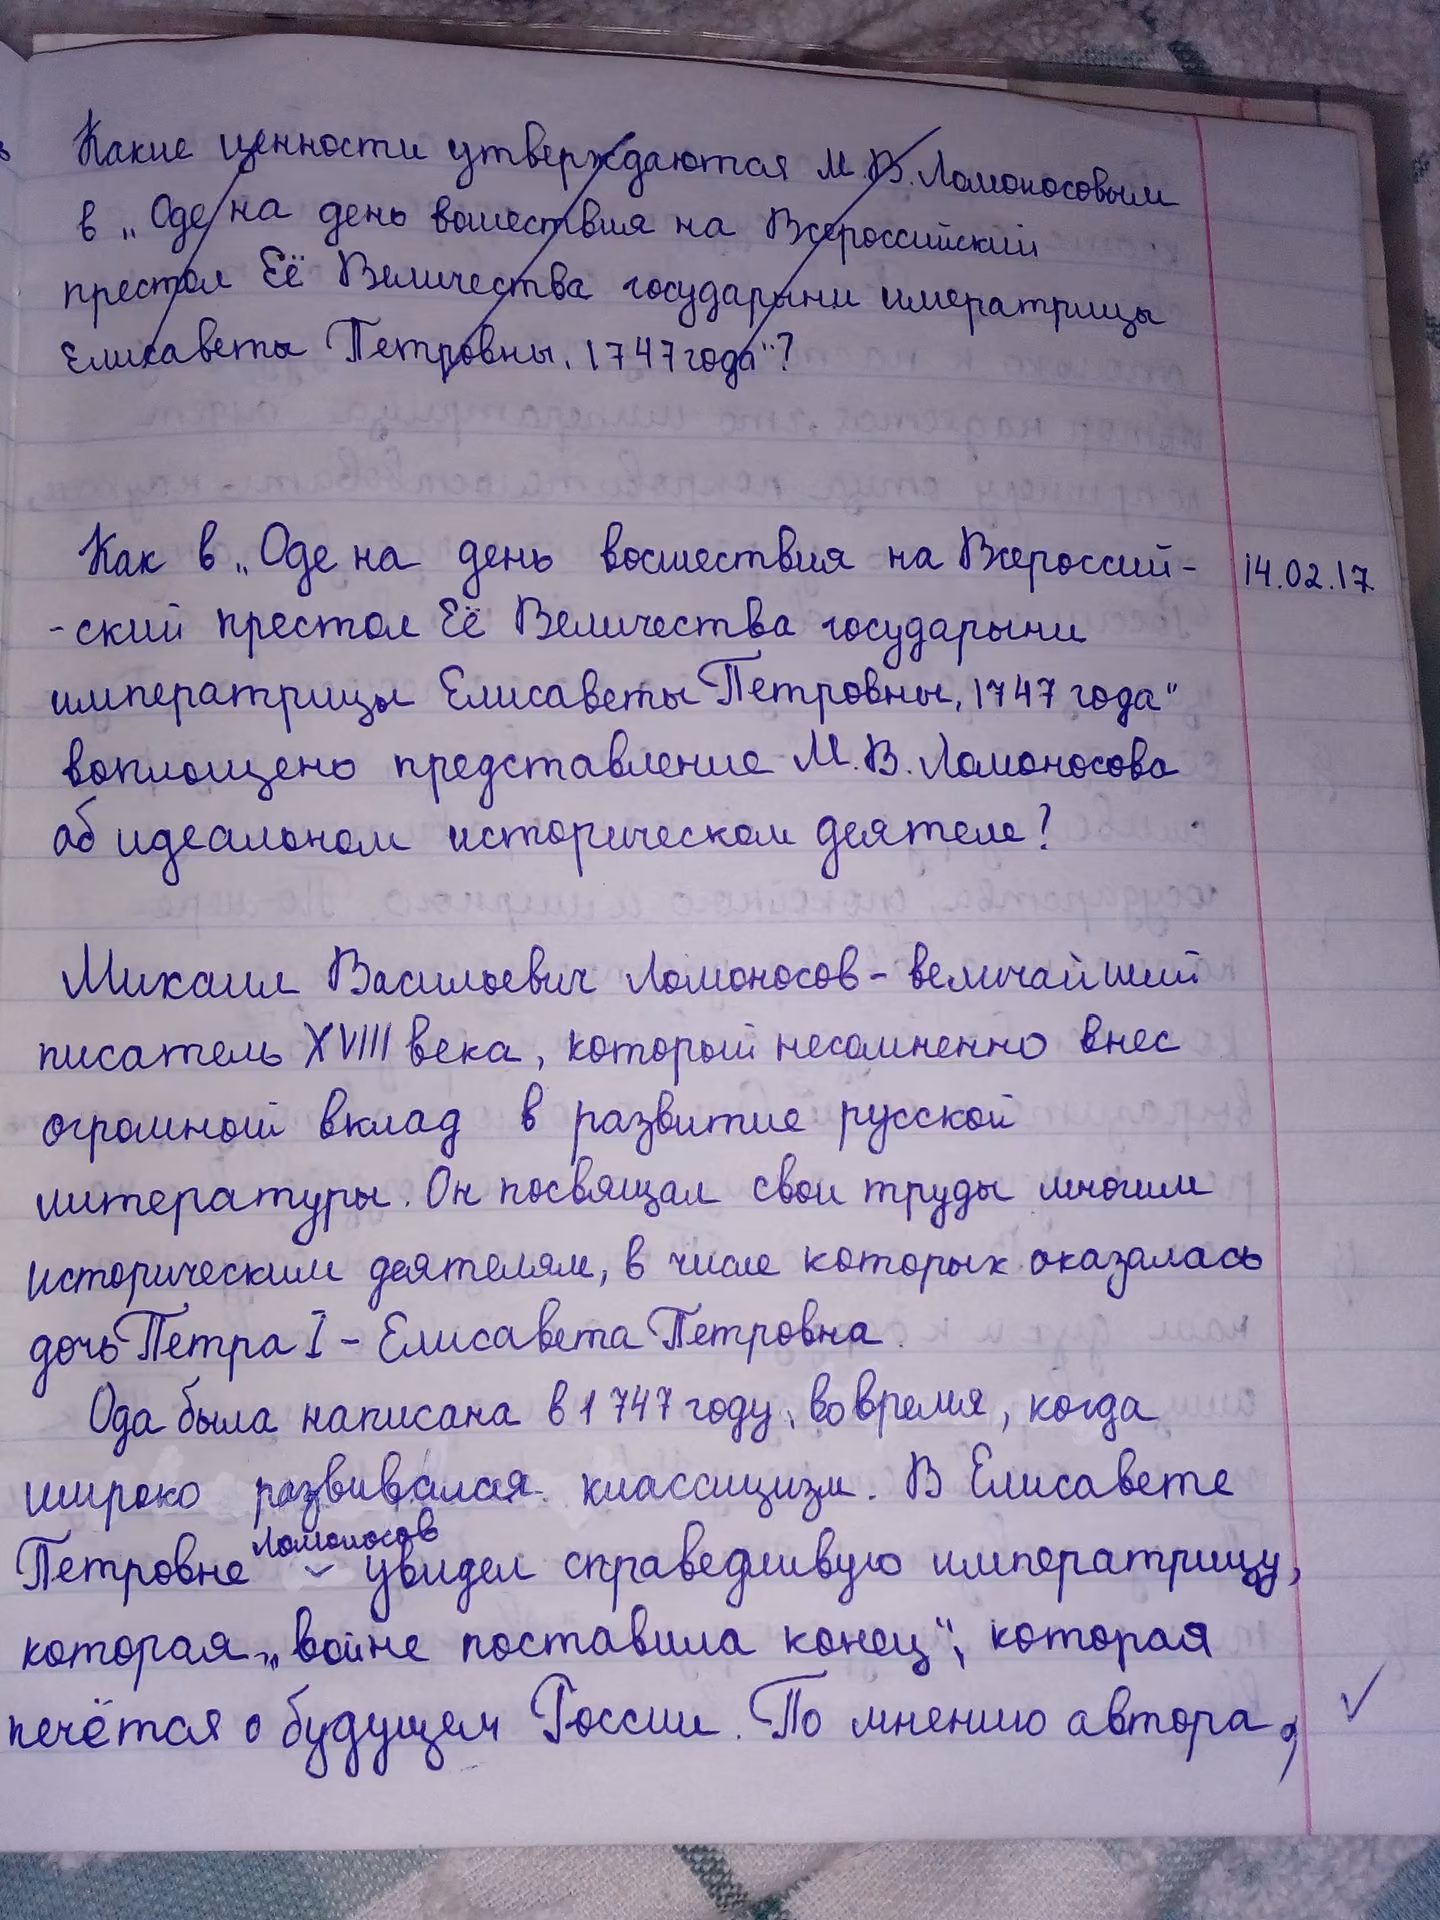 Какие ценности утверждаются М.В.Ломоносовым
в „Оде на день вошествия на Всероссийский
престол Её Величества государыни императрицы
Елисаветы Петровны, 1747 года"?
Как в „Оде на день восшествия на Всероссий- 14.02.17
-ский престол Её Величества государыни
императрицы Елисаветы Петровны, 1747 года"
воплощено представление М.В.Ломоносова
об идеальном историческом деятеле?
Михаил Васильевич Ломоносов - величайший
писатель XVIII века, который несомненно внес
огромный вклад в развитие русской
литературы. Он посвящал свои труды многим
историческим деятелям, в числе которых оказалась
дочь Петра I - Елисавета Петровна.
Ода была написана в 1747 году, во время, когда
широко развивался классицизм. В Елисавете
Ломоносов
Петровне увидел справедливую императрицу,
которая „войне поставила конец", которая
печётся о будущем России. По мнению автора,